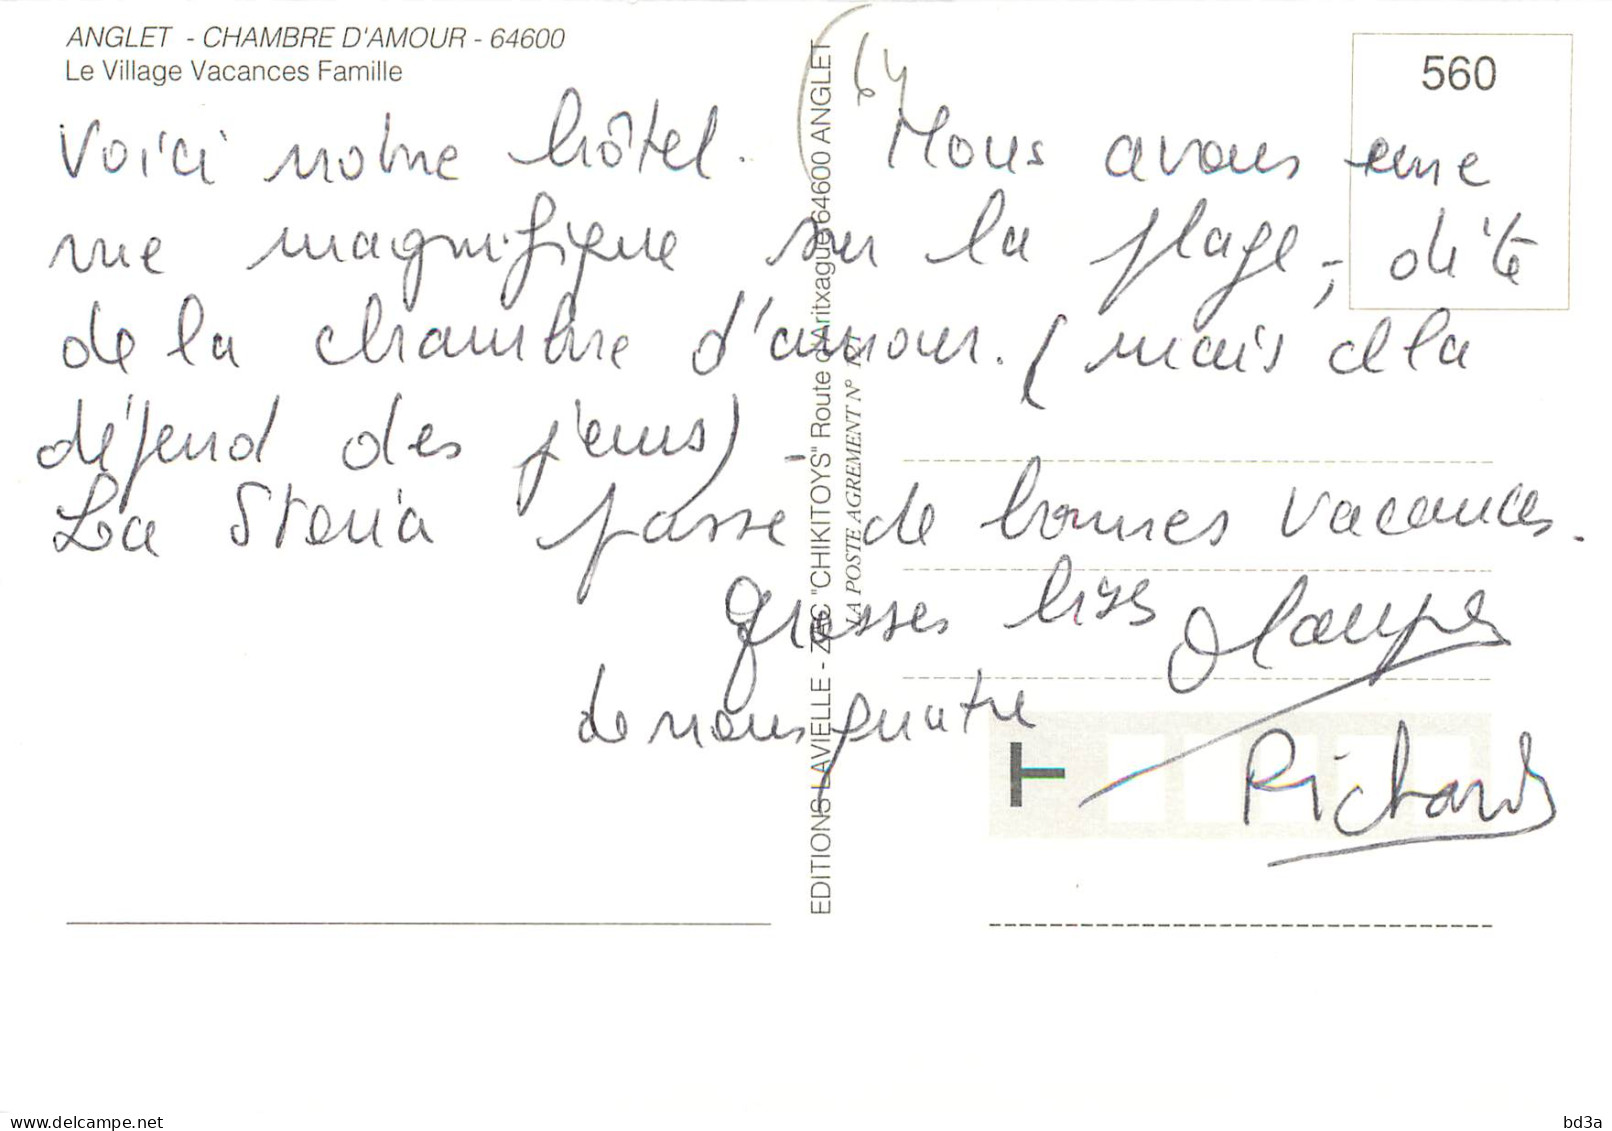 ANGLET - CHAMBRE D'AMOUR - 64600
Le Village Vacances Famille
560
64
Voici notre hôtel. Nous avons une
vue magnifique sur la plage, dite
de la chambre d'amour. (mais cela
défend des jours) -
La Steria passe de bonnes vacances.
grosses bises
de nous quatre
Richard
EDITIONS LAVIELLE - ZAC "CHIKITOYS" Route d'Aritxague 64600 ANGLET
LA POSTE AGREMENT N°
T
delcampe.net
bd3a